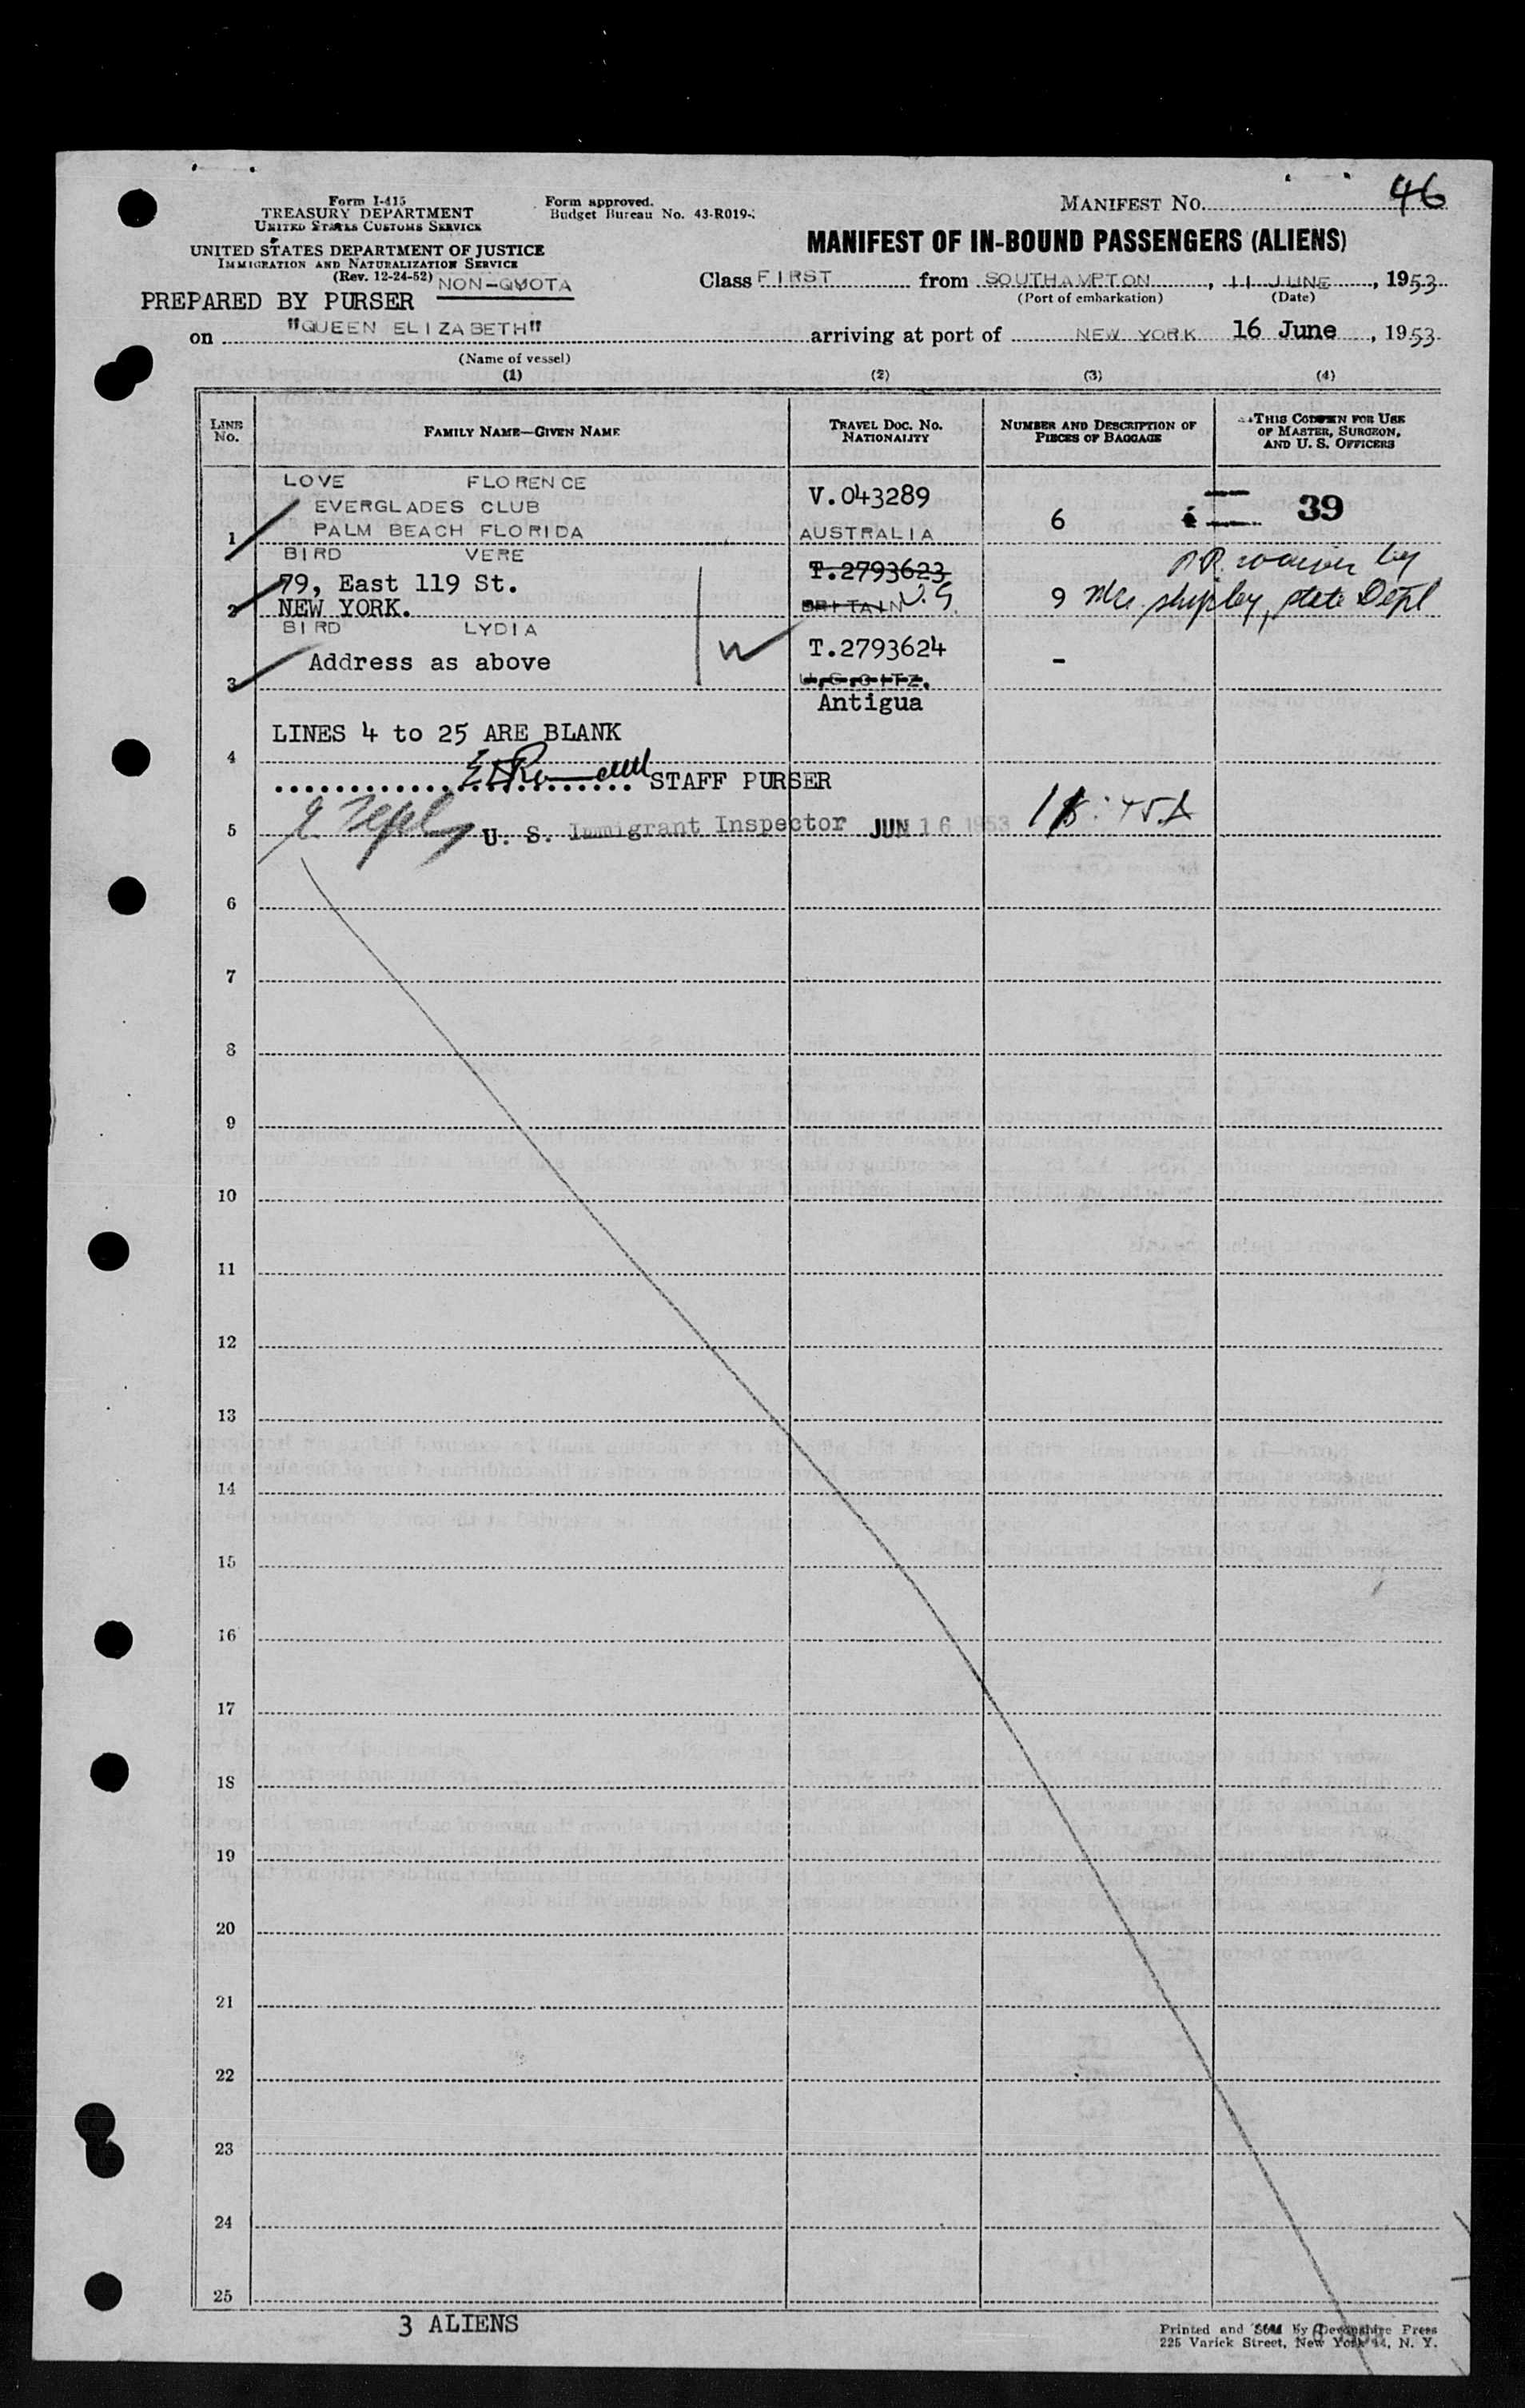 46
Form I-415
TREASURY DEPARTMENT
UNITED STATES CUSTOMS SERVICE
UNITED STATES DEPARTMENT OF JUSTICE
IMMIGRATION AND NATURALIZATION SERVICE
(Rev. 12-24-52)
Form approved.
Budget Bureau No. 43-R019-
MANIFEST NO.
MANIFEST OF IN-BOUND PASSENGERS (ALIENS)
NON-QUOTA
PREPARED BY PURSER
Class FIRST from SOUTHAMPTON, 11 JUNE, 1953
(Port of embarkation) (Date)
on "QUEEN ELIZABETH" arriving at port of NEW YORK 16 June, 1953
(Name of vessel)
(1) (2) (3) (4)
LINE NO. FAMILY NAME—GIVEN NAME TRAVEL DOC. NO. NATIONALITY NUMBER AND DESCRIPTION OF PIECES OF BAGGAGE THIS COLUMN FOR USE OF MASTER, SURGEON, AND U. S. OFFICERS
LOVE FLORENCE
EVERGLADES CLUB V.043289
1 PALM BEACH FLORIDA AUSTRALIA 6 39
BIRD VERE T.2793623
79, East 119 St. BRITAIN U.S. 9 P.P. waiver by
2 NEW YORK. Mrs. Shipley, State Dept
BIRD LYDIA
Address as above W T.2793624 -
3
Antigua
LINES 4 to 25 ARE BLANK
4
STAFF PURSER
5 U. S. Immigrant Inspector JUN 16 1953
6
7
8
9
10
11
12
13
14
15
16
17
18
19
20
21
22
23
24
25
3 ALIENS
Printed and Sold by Devonshire Press
225 Varick Street, New York 14, N. Y.